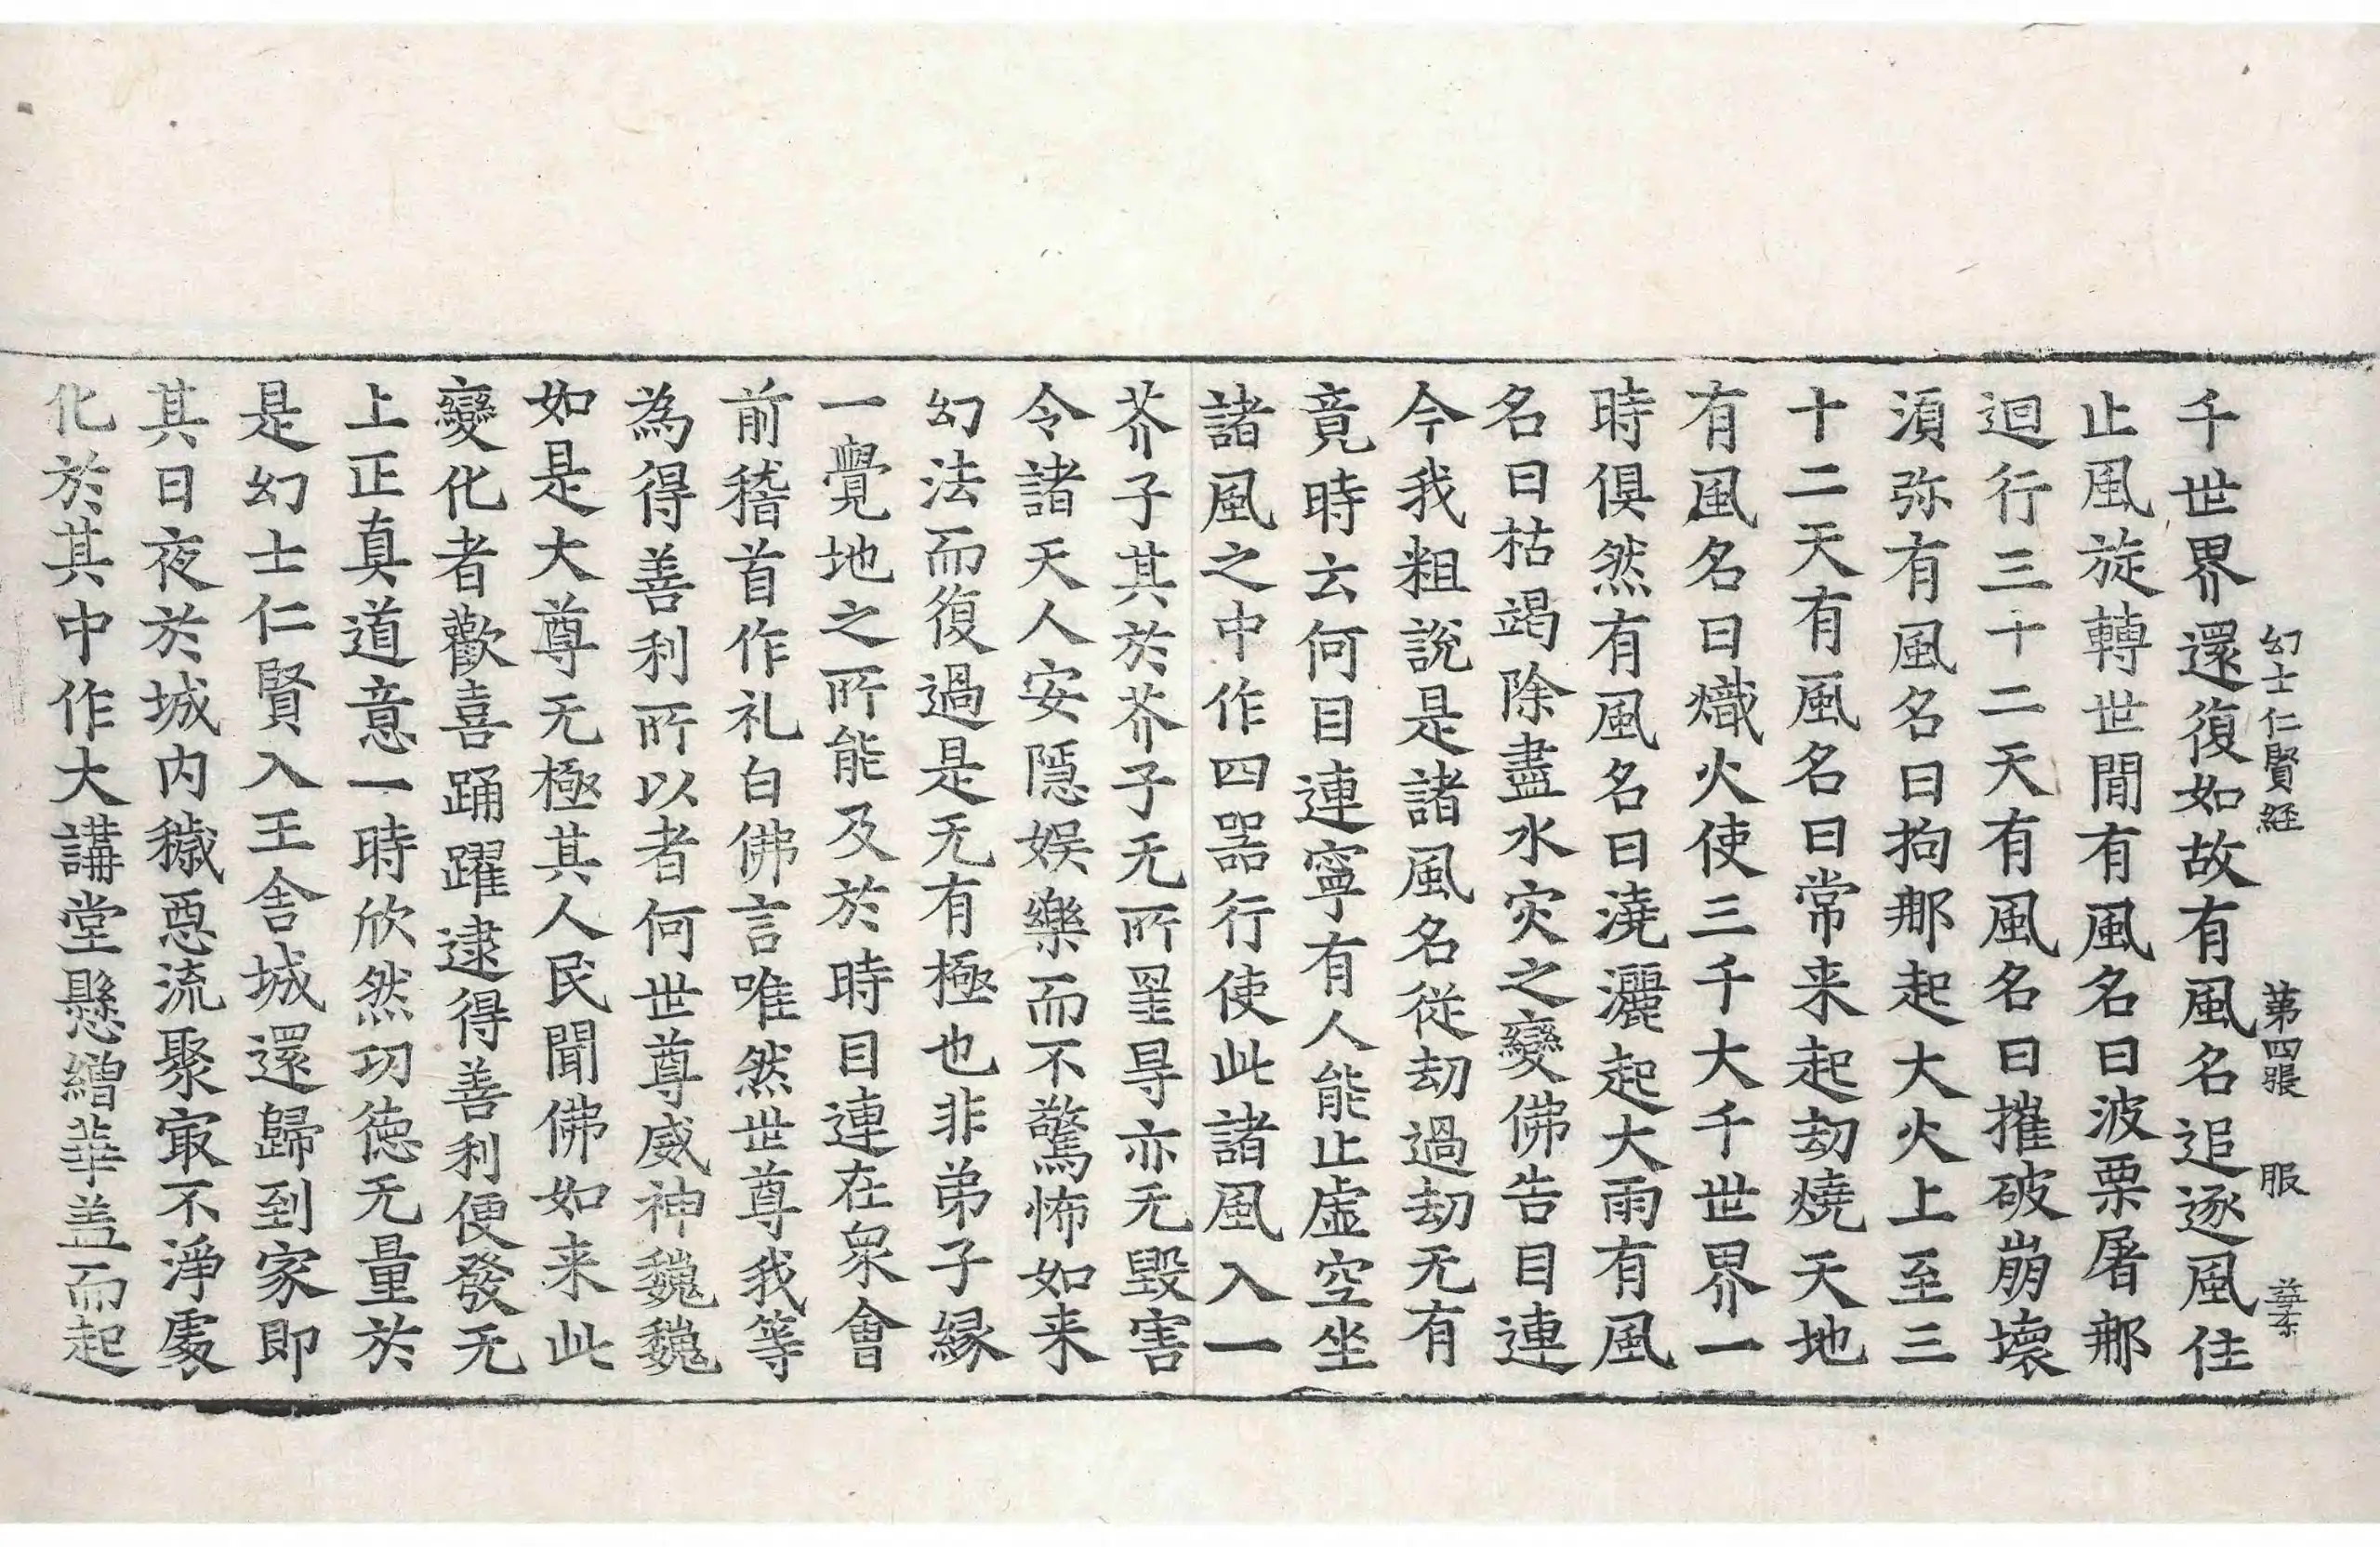 幻士仁賢経 第四張 服
千世界還復如故有風名追逐風住
止風旋轉世間有風名曰波栗屠那
迴行三十二天有風名曰摧破崩壞
湏弥有風名曰拘那起大火上至三
十二天有風名曰常来起劫燒天地
有風名曰熾火使三千大千世界一
時俱然有風名曰澆灑起大雨有風
名曰枯竭除盡水灾之變佛告目連
今我粗說是諸風名從劫過劫无有
竟時云何目連寧有人能止虛空坐
諸風之中作四噐行使此諸風入一
芥子其於芥子无所罣㝵亦无毀害
令諸天人安隱娛樂而不驚怖如来
幻法而復過是无有極也非弟子縁
一覺地之所能及於時目連在衆會
前稽首作礼白佛言唯然世尊我等
為得善利所以者何世尊威神巍巍
如是大尊无極其人民聞佛如来此
變化者歡喜踊躍逮得善利便發无
上正真道意一時欣然功德无量於
是幻士仁賢入王舍城還歸到家即
其日夜於城内穢惡流聚㝡不淨處
化於其中作大講堂懸繒華盖而起